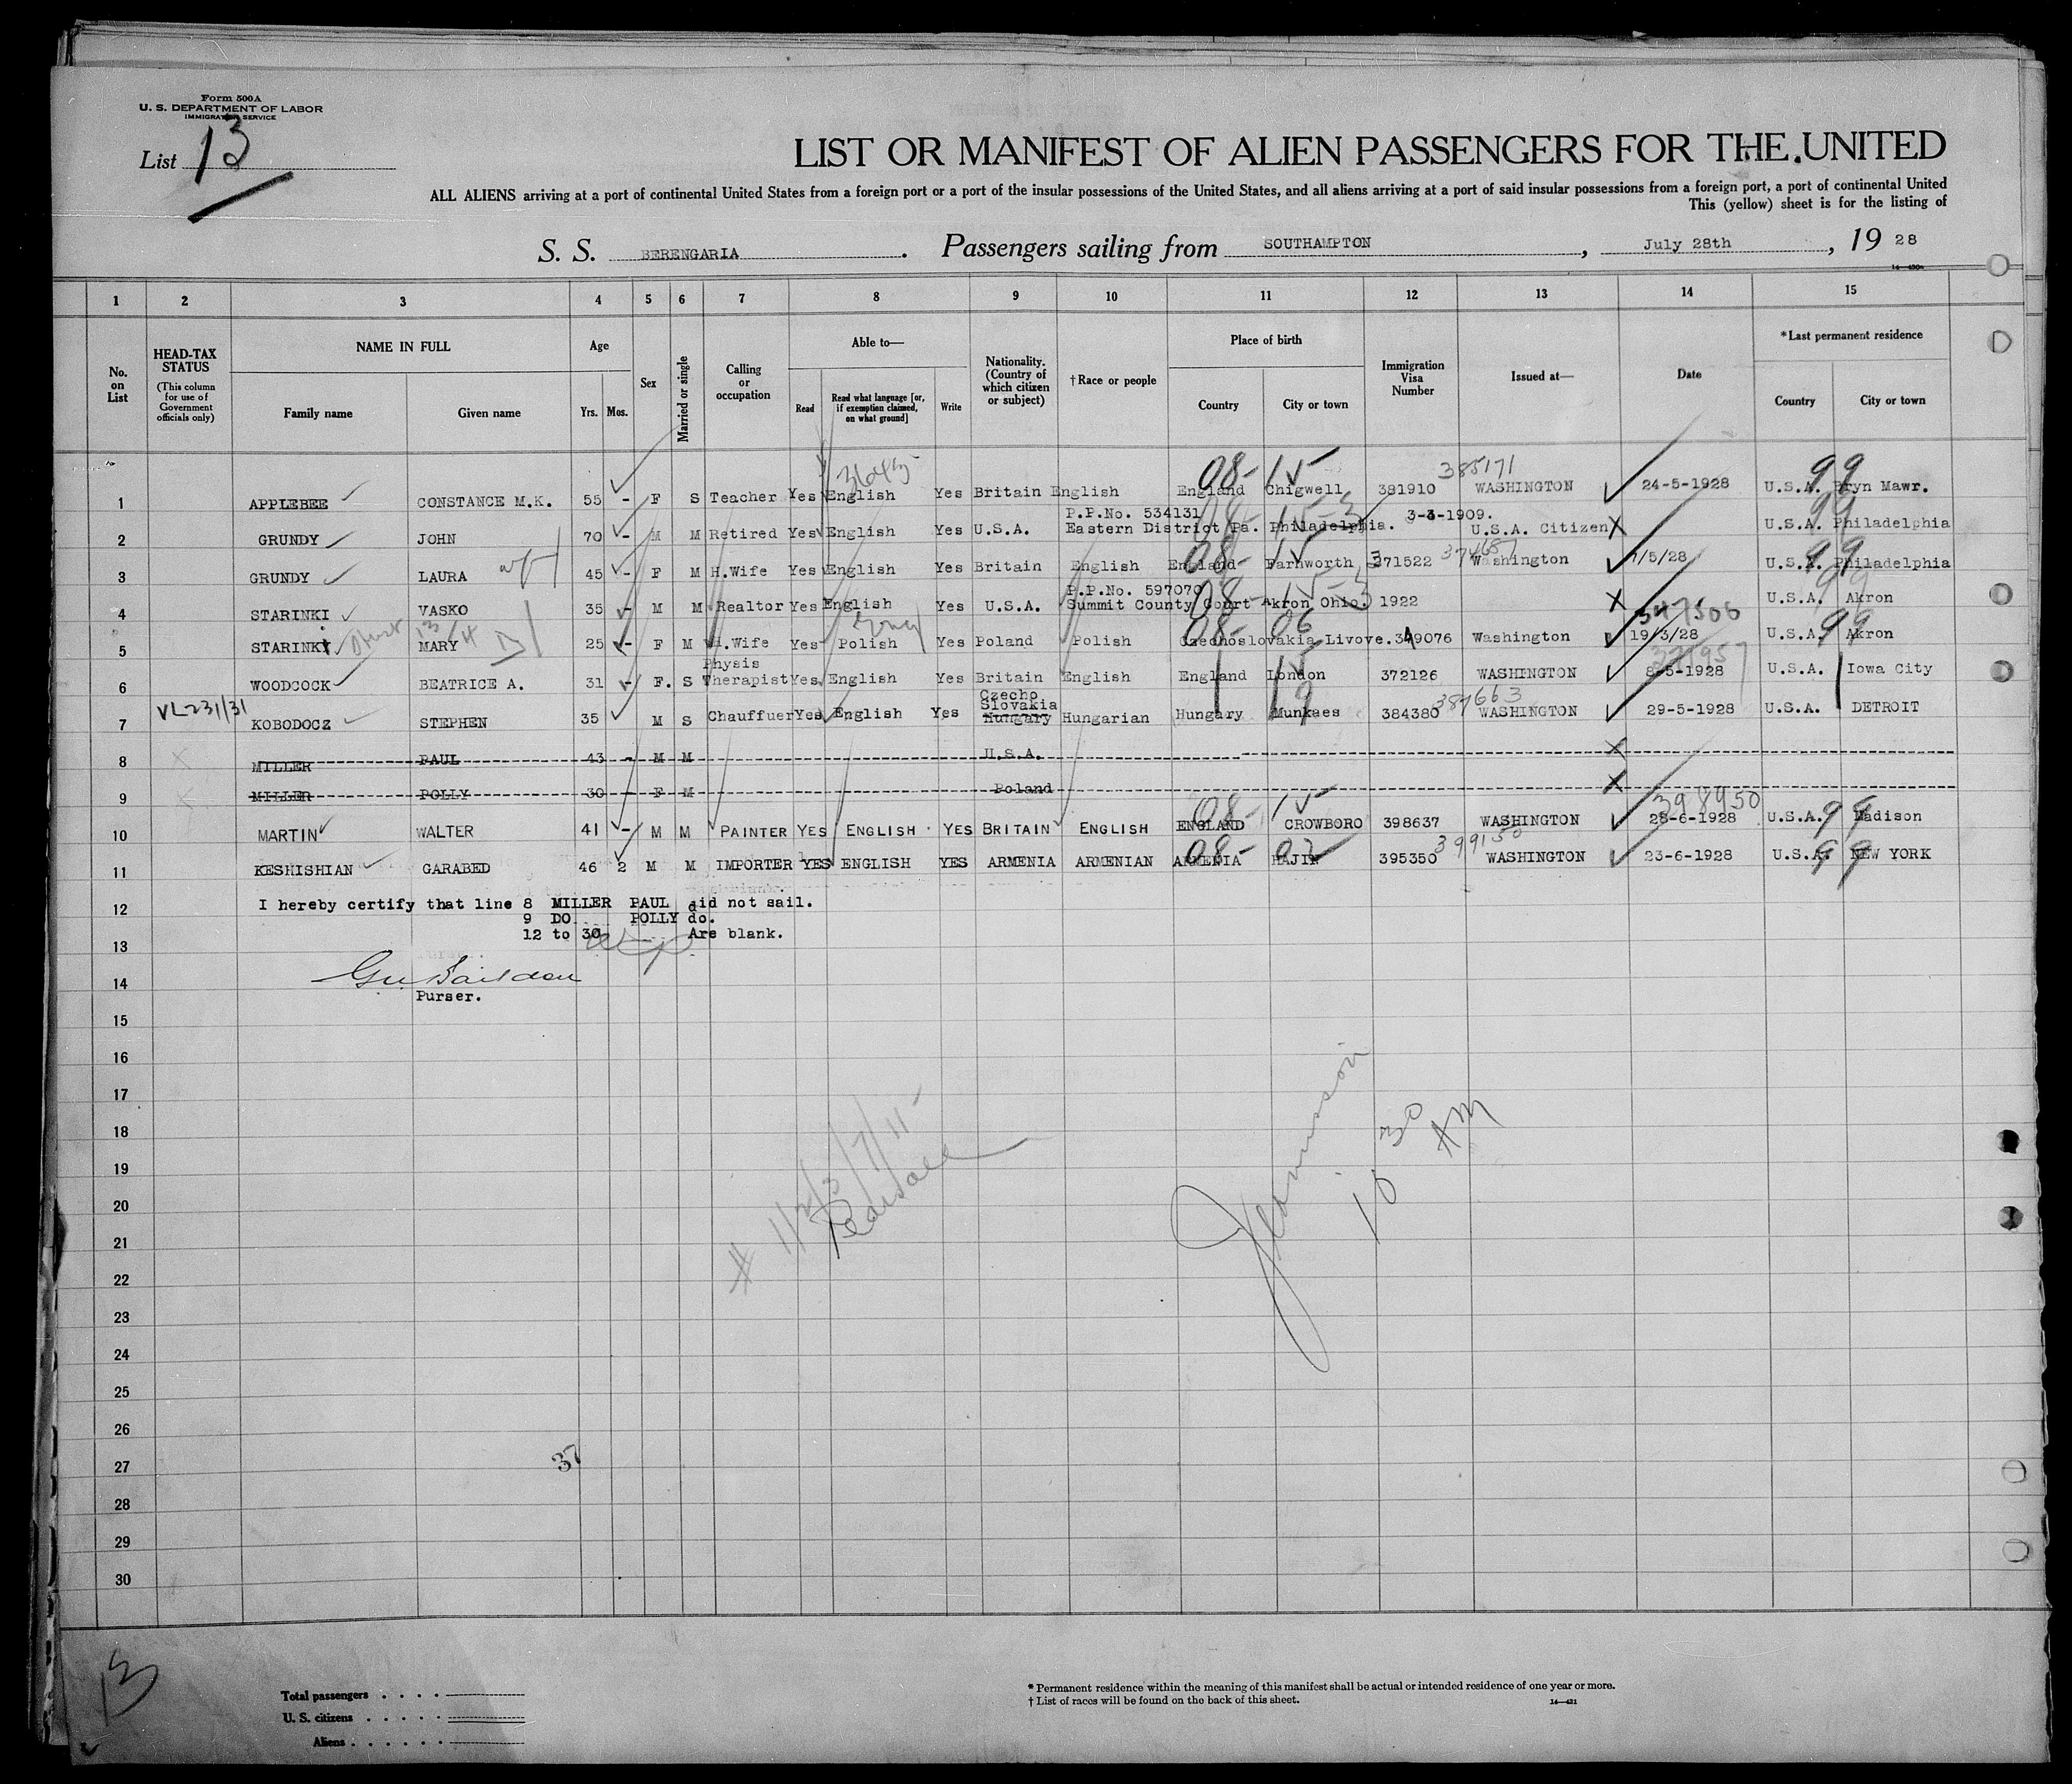 Form 500A
U. S. DEPARTMENT OF LABOR
IMMIGRATION SERVICE
List 13
LIST OR MANIFEST OF ALIEN PASSENGERS FOR THE UNITED
ALL ALIENS arriving at a port of continental United States from a foreign port or a port of the insular possessions of the United States, and all aliens arriving at a port of said insular possessions from a foreign port, a port of continental United
This (yellow) sheet is for the listing of
S. S. BERENGARIA. Passengers sailing from SOUTHAMPTON, July 28th, 1928
1 2 3 4 5 6 7 8 9 10 11 12 13 14 15
No. on List
HEAD-TAX STATUS (This column for use of Government officials only)
NAME IN FULL
Family name Given name
Age
Yrs. Mos.
Sex
Married or single
Calling or occupation
Able to—
Read Read what language [or, if exemption claimed, on what ground] Write
Nationality. (Country of which citizen or subject)
†Race or people
Place of birth
Country City or town
Immigration Visa Number
Issued at—
Date
*Last permanent residence
Country City or town
3645 08- 15 385171 99
1 APPLEBEE CONSTANCE M.K. 55 - F S Teacher Yes English Yes Britain English England Chigwell 381910 WASHINGTON 24-5-1928 U.S.A. Bryn Mawr.
P.P.No. 534131 3-3-1909.
2 GRUNDY JOHN 70 - M M Retired Yes English Yes U.S.A. Eastern District Pa. Philadelphia. U.S.A. Citizen U.S.A. Philadelphia
3 GRUNDY LAURA 45 - F M H.Wife Yes English Yes Britain English England Farnworth 371522 Washington 7/5/28 U.S.A. Philadelphia
P.P.No. 597070
4 STARINKI VASKO 35 - M M Realtor Yes English Yes U.S.A. Summit County Court Akron Ohio. 1922 U.S.A. Akron
5 STARINKI MARY 25 - F M H.Wife Yes Polish Yes Poland Polish Czechoslovakia Livove. 349076 Washington 19/3/28 U.S.A. Akron
6 WOODCOCK BEATRICE A. 31 - F. S Physis Therapist Yes English Yes Britain English England London 372126 WASHINGTON 8-5-1928 U.S.A. Iowa City
VL231/31
7 KOBODOCZ STEPHEN 35 M S Chauffuer Yes English Yes Czecho Slovakia Hungary Hungarian Hungary Munkaes 384380 387663 WASHINGTON 29-5-1928 U.S.A. DETROIT
8 MILLER PAUL 43 - M M U.S.A.
9 MILLER POLLY 30 - F M Poland
08- 15 398950 99
10 MARTIN WALTER 41 - M M PAINTER YES ENGLISH YES BRITAIN ENGLISH ENGLAND CROWBORO 398637 WASHINGTON 28-6-1928 U.S.A. Madison
08- 02 399150 99
11 KESHISHIAN GARABED 46 2 M M IMPORTER YES ENGLISH YES ARMENIA ARMENIAN ARMENIA HAJIN 395350 WASHINGTON 23-6-1928 U.S.A. NEW YORK
12 I hereby certify that line 8 MILLER PAUL did not sail.
9 DO. POLLY do.
12 to 30 Are blank.
13
14
Purser.
15
16
17
18
19
20
21
22
23
24
25
26
27
28
29
30
10 30 AM
37
13
Total passengers
U. S. citizens
Aliens
* Permanent residence within the meaning of this manifest shall be actual or intended residence of one year or more.
† List of races will be found on the back of this sheet.
14—431